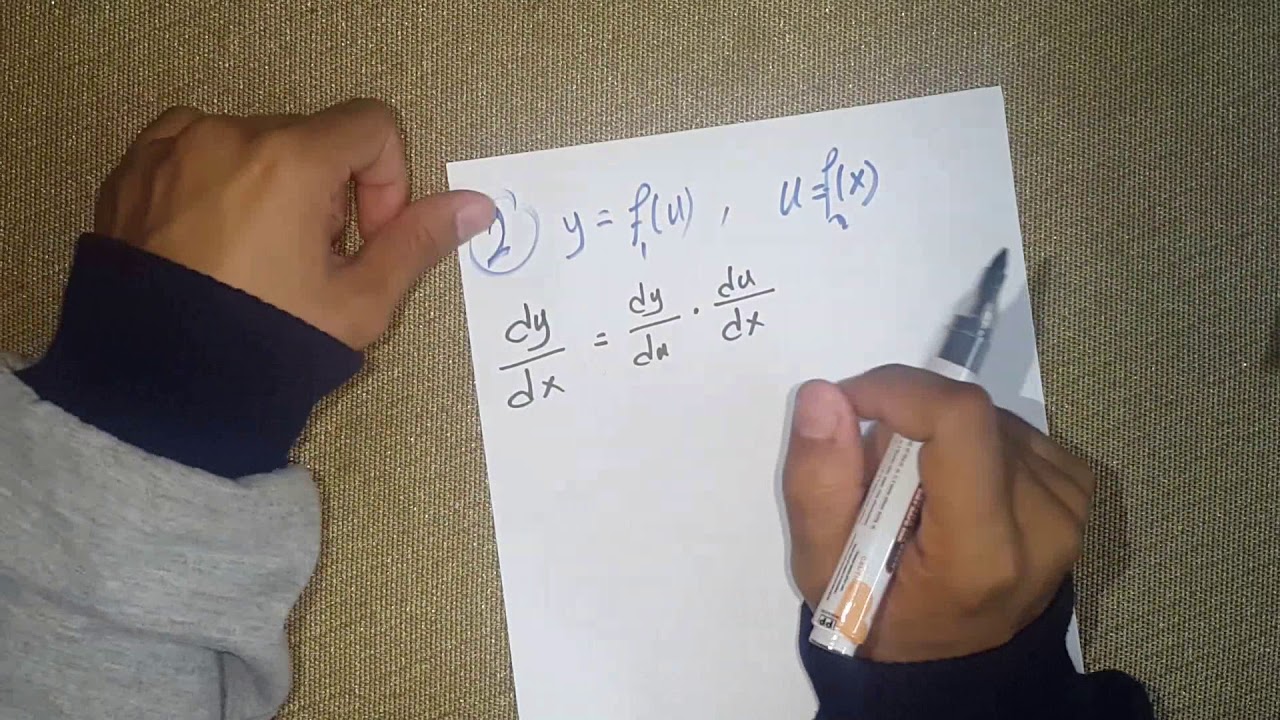 2 y = f₁(u), u = f₂(x)
dy/dx = dy/du · du/dx